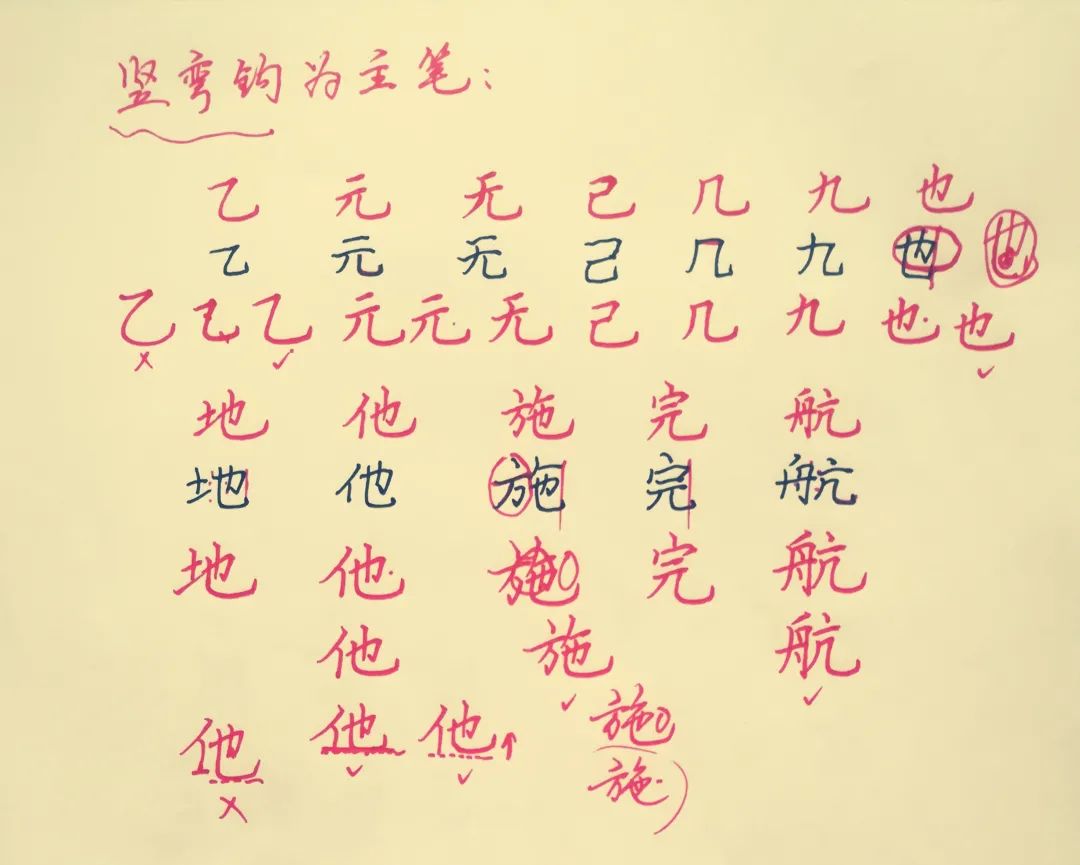 竖弯钩为主笔：
乙 元 无 己 几 九 也
乙 元 无 己 几 九 也 也
乙 乙 乙 元 元 无 己 几 九 也 也
地 他 施 完 航
地 他 施 完 航
地 他 施 完 航
他 施 航
他 他 他 施
施